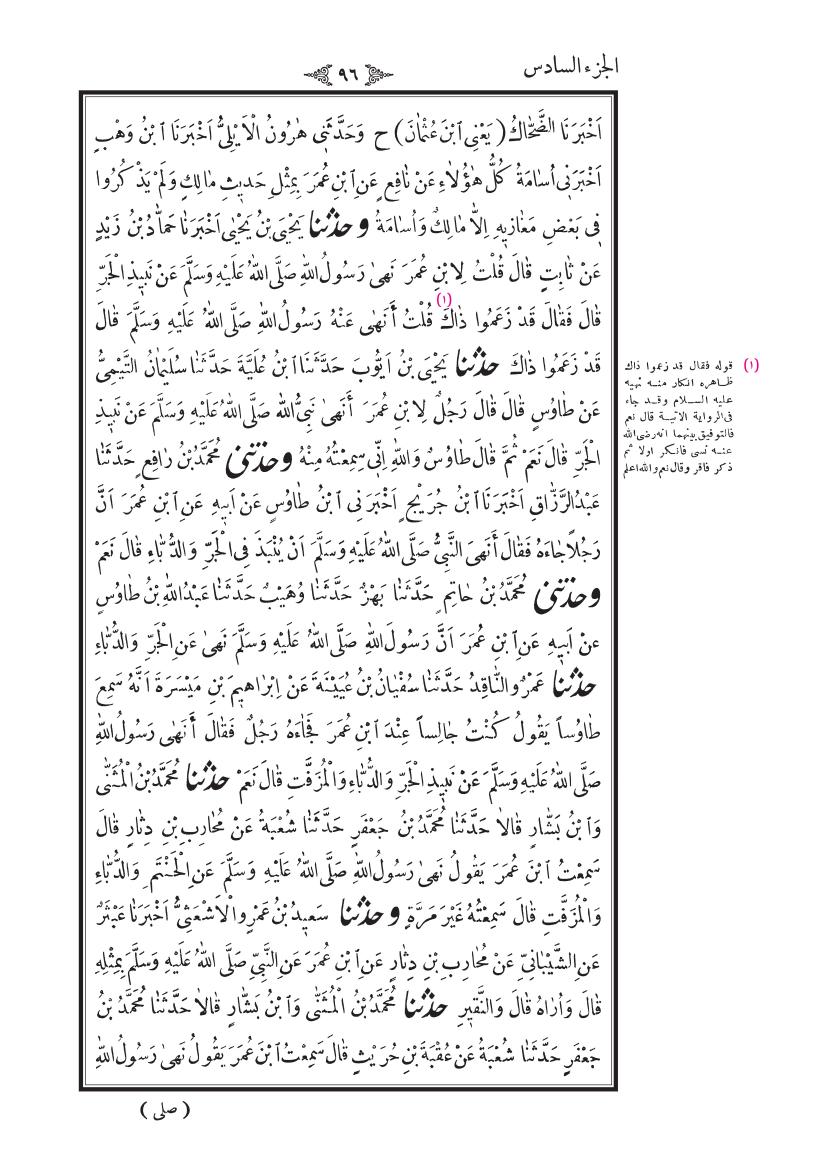 الجزء السادس
٩٦
اَخْبَرَنَا الضَّحّٰاكُ ( يَعْنِى ابْنَ عُثْمٰانَ ) ح وَحَدَّثَنِى هٰرُونُ الْاَيْلِىُّ اَخْبَرَنَا ابْنُ وَهْبٍ
اَخْبَرَنِى اُسٰامَةُ كُلُّ هٰؤُلٰاءِ عَنْ نٰافِعٍ عَنِ ابْنِ عُمَرَ بِمِثْلِ حَديثِ مٰالِكٍ وَلَمْ يَذْكُرُوا
فِى بَعْضِ مَغٰازيهِ اِلاّٰ مٰالِكٌ وَاُسٰامَةُ وحدثنا يَحْيَى بْنُ يَحْيٰى اَخْبَرَنٰا حَمّٰادُ بْنُ زَيْدٍ
عَنْ ثٰابِتٍ قٰالَ قُلْتُ لِابْنِ عُمَرَ نَهٰى رَسُولُ اللّٰهِ صَلَّى اللّٰهُ عَلَيْهِ وَسَلَّمَ عَنْ نَبيذِ الْجَرِّ
قٰالَ فَقٰالَ قَدْ زَعَمُوا ذٰاكَ (١) قُلْتُ أَنَهٰى عَنْهُ رَسُولُ اللّٰهِ صَلَّى اللّٰهُ عَلَيْهِ وَسَلَّمَ قٰالَ
قَدْ زَعَمُوا ذٰاكَ حدثنا يَحْيَى بْنُ اَيُّوبَ حَدَّثَنَا ابْنُ عُلَيَّةَ حَدَّثَنٰا سُلَيْمٰانُ التَّيْمِىُّ
عَنْ طٰاوُسٍ قٰالَ قٰالَ رَجُلٌ لِابْنِ عُمَرَ أَنَهٰى نَبِىُّ اللّٰهِ صَلَّى اللّٰهُ عَلَيْهِ وَسَلَّمَ عَنْ نَبيذِ
الْجَرِّ قٰالَ نَعَمْ ثُمَّ قٰالَ طٰاوُسٌ وَاللّٰهِ اِنّى سَمِعْتُهُ مِنْهُ وحدثنى مُحَمَّدُ بْنُ رٰافِعٍ حَدَّثَنٰا
عَبْدُ الرَّزّٰاقِ اَخْبَرَنَا ابْنُ جُرَيْجٍ اَخْبَرَنِى ابْنُ طٰاوُسٍ عَنْ اَبيهِ عَنِ ابْنِ عُمَرَ اَنَّ
رَجُلاً جٰاءَهُ فَقٰالَ أَنَهَى النَّبِىُّ صَلَّى اللّٰهُ عَلَيْهِ وَسَلَّمَ اَنْ يُنْبَذَ فِى الْجَرِّ وَالدُّبّٰاءِ قٰالَ نَعَمْ
وحدثنى مُحَمَّدُ بْنُ حٰاتِمٍ حَدَّثَنٰا بَهْزٌ حَدَّثَنٰا وُهَيْبٌ حَدَّثَنٰا عَبْدُ اللّٰهِ بْنُ طٰاوُسٍ
عَنْ اَبيهِ عَنِ ابْنِ عُمَرَ اَنَّ رَسُولَ اللّٰهِ صَلَّى اللّٰهُ عَلَيْهِ وَسَلَّمَ نَهٰى عَنِ الْجَرِّ وَالدُّبّٰاءِ
حدثنا عَمْرٌو النّٰاقِدُ حَدَّثَنٰا سُفْيٰانُ بْنُ عُيَيْنَةَ عَنْ اِبْرٰاهيمَ بْنِ مَيْسَرَةَ اَنَّهُ سَمِعَ
طٰاوُساً يَقُولُ كُنْتُ جٰالِساً عِنْدَ ابْنِ عُمَرَ فَجٰاءَهُ رَجُلٌ فَقٰالَ أَنَهٰى رَسُولُ اللّٰهِ
صَلَّى اللّٰهُ عَلَيْهِ وَسَلَّمَ عَنْ نَبيذِ الْجَرِّ وَالدُّبّٰاءِ وَالْمُزَفَّتِ قٰالَ نَعَمْ حدثنا مُحَمَّدُ بْنُ الْمُثَنّٰى
وَابْنُ بَشّٰارٍ قٰالاٰ حَدَّثَنٰا مُحَمَّدُ بْنُ جَعْفَرٍ حَدَّثَنٰا شُعْبَةُ عَنْ مُحٰارِبِ بْنِ دِثٰارٍ قٰالَ
سَمِعْتُ ابْنَ عُمَرَ يَقُولُ نَهٰى رَسُولُ اللّٰهِ صَلَّى اللّٰهُ عَلَيْهِ وَسَلَّمَ عَنِ الْحَنْتَمِ وَالدُّبّٰاءِ
وَالْمُزَفَّتِ قٰالَ سَمِعْتُهُ غَيْرَ مَرَّةٍ وحدثنا سَعيدُ بْنُ عَمْرٍو الْاَشْعَثِىُّ اَخْبَرَنٰا عَبْثَرٌ
عَنِ الشَّيْبٰانِىِّ عَنْ مُحٰارِبِ بْنِ دِثٰارٍ عَنِ ابْنِ عُمَرَ عَنِ النَّبِىِّ صَلَّى اللّٰهُ عَلَيْهِ وَسَلَّمَ بِمِثْلِهِ
قٰالَ وَاُرٰاهُ قٰالَ وَالنَّقيرِ حدثنا مُحَمَّدُ بْنُ الْمُثَنّٰى وَابْنُ بَشّٰارٍ قٰالاٰ حَدَّثَنٰا مُحَمَّدُ بْنُ
جَعْفَرٍ حَدَّثَنٰا شُعْبَةُ عَنْ عُقْبَةَ بْنِ حُرَيْثٍ قٰالَ سَمِعْتُ ابْنَ عُمَرَ يَقُولُ نَهٰى رَسُولُ اللّٰهِ
(١) قوله فقال قد زعموا ذاك
ظاهره انكار منه نهيه
عليه السلام وقد جاء
فى الرواية الآتية قال نعم
فالتوفيق بينهما انه رضى الله
عنه نسى فانكر اولا ثم
ذكر فاقر وقال نعم والله اعلم
( صلى )